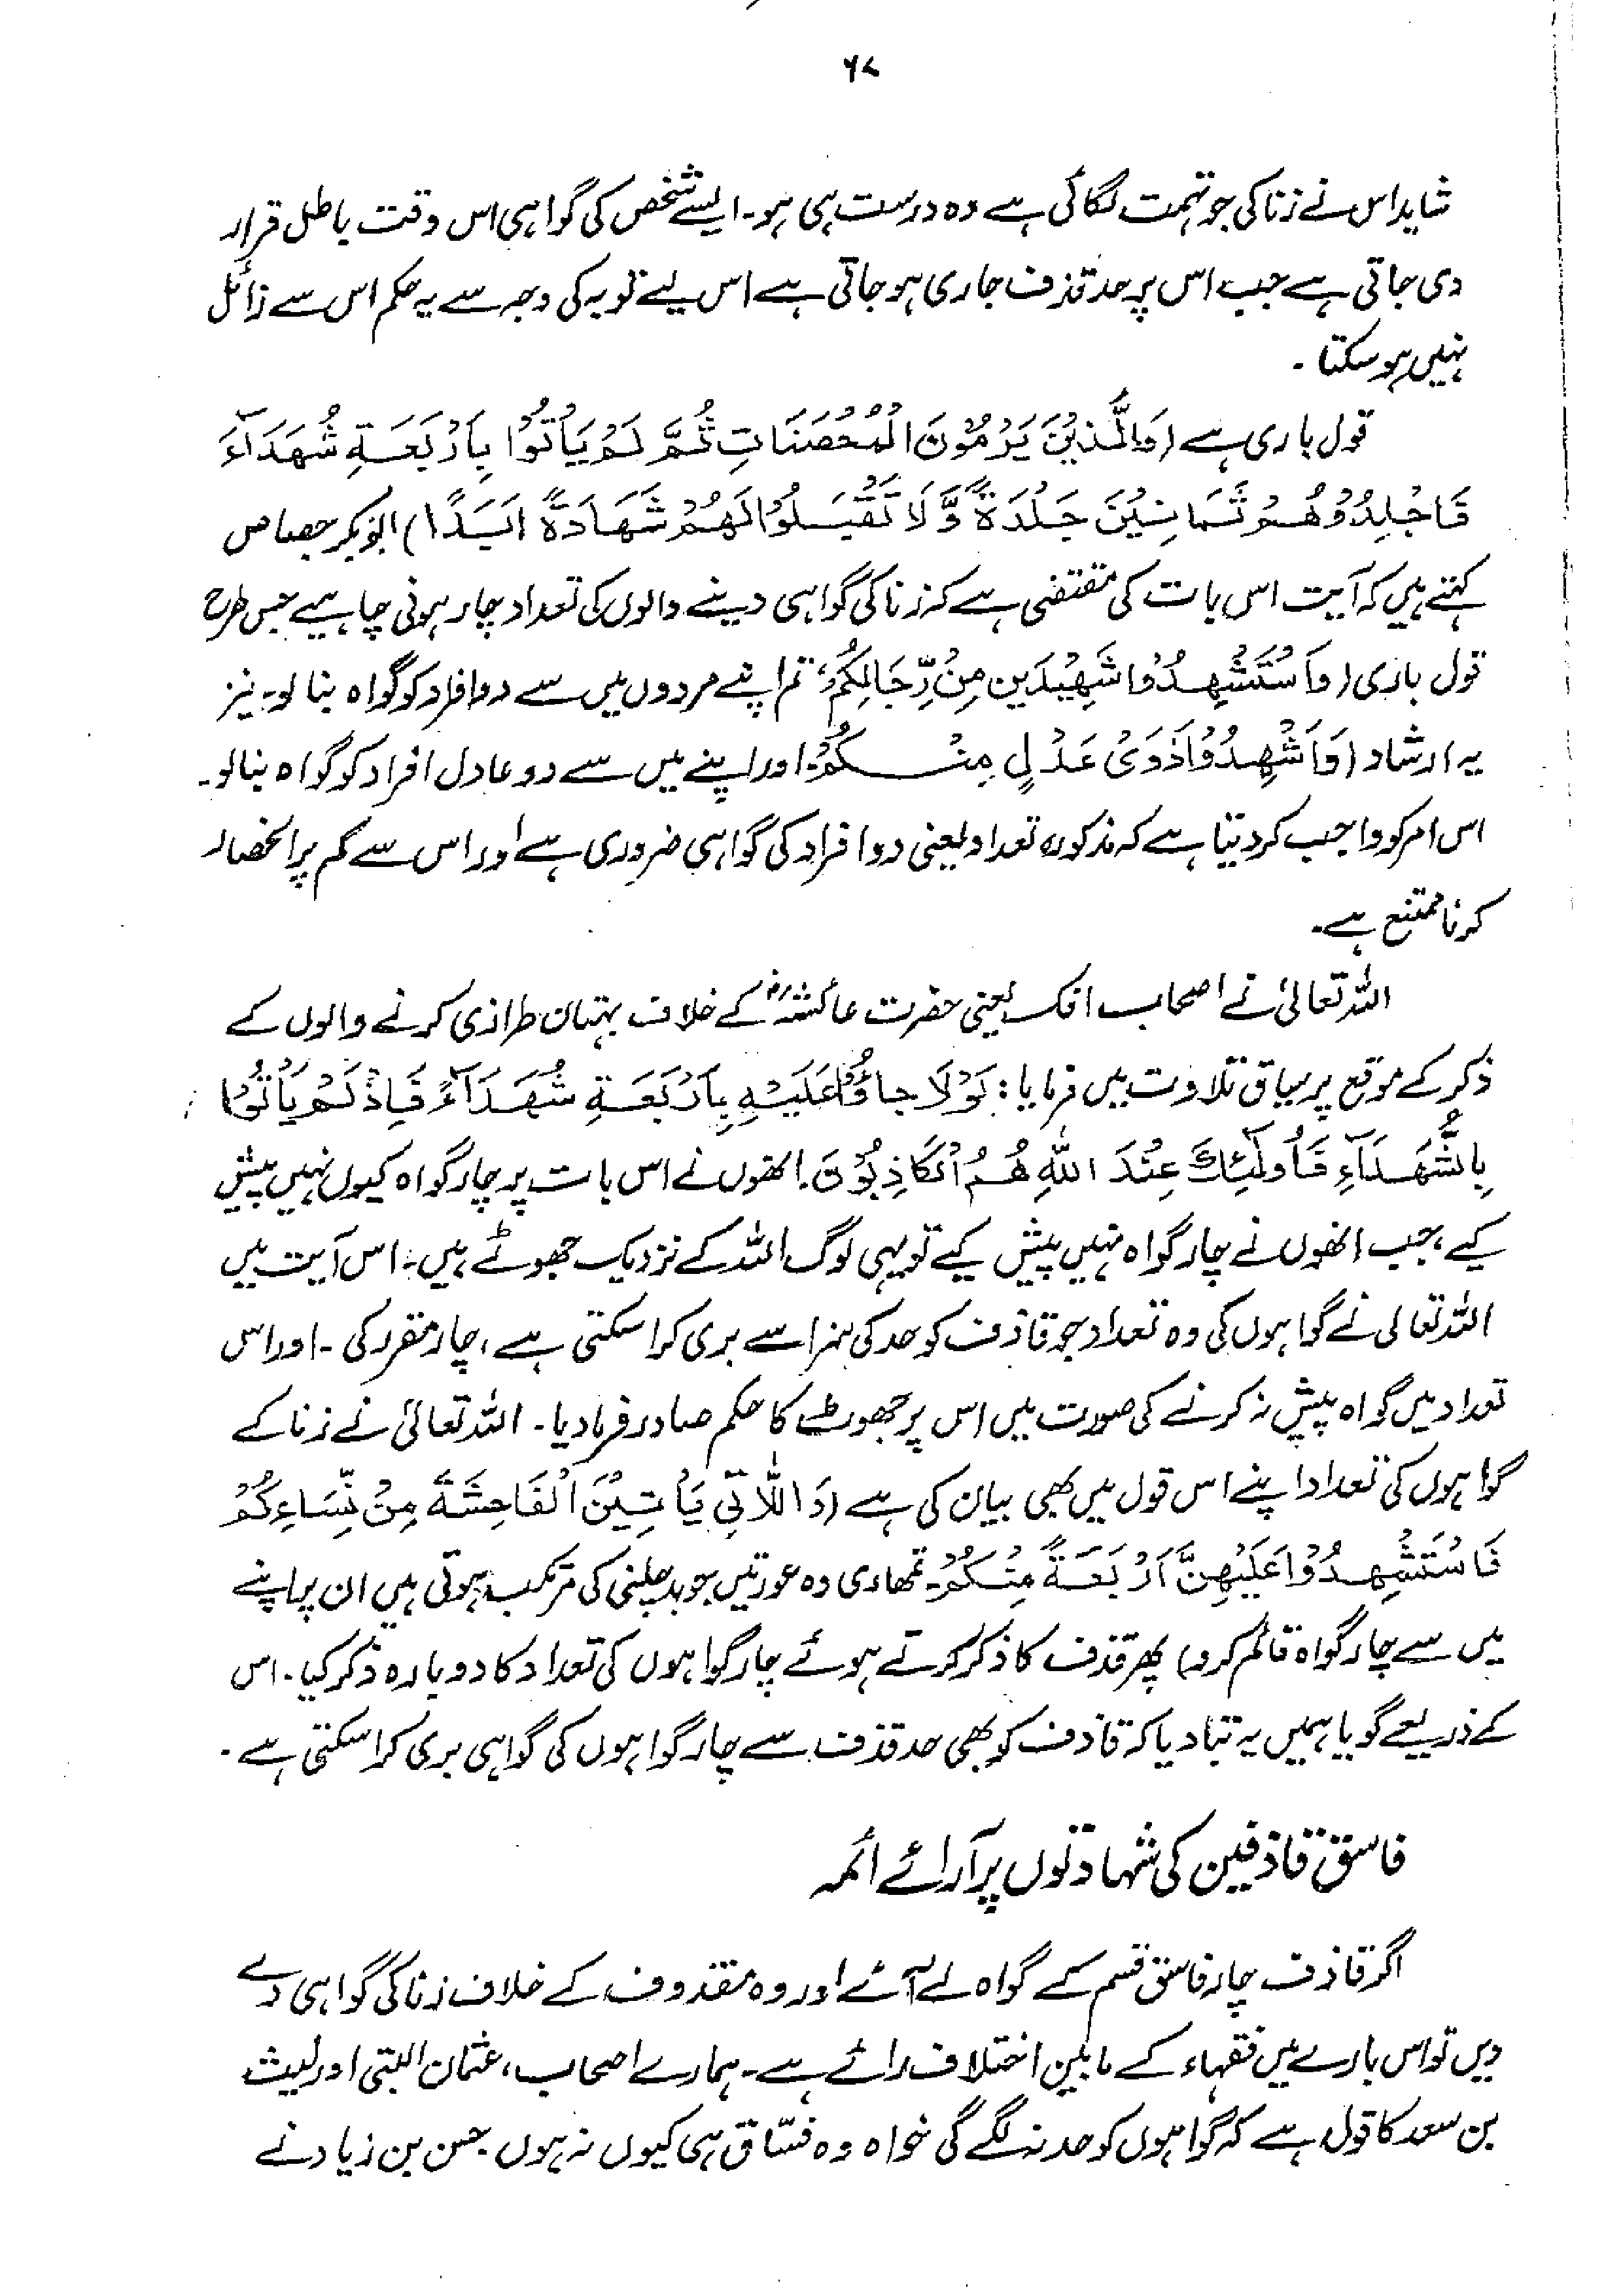 ۶۷
شاید اس نے زنا کی جو تہمت لگائی ہے وہ درست ہی ہو۔ ایسے شخص کی گواہی اس وقت باطل قرار
دی جاتی ہے جب اس پر حد قذف جاری ہو جاتی ہے اس لیے توبہ کی وجہ سے یہ حکم اس سے زائل
نہیں ہو سکتا۔
قول باری ہے (وَالَّذِیْنَ یَرْمُوْنَ الْمُحْصَنَاتِ ثُمَّ لَمْ یَأْتُوْا بِاَرْبَعَةِ شُهَدَآءَ
فَاجْلِدُوْهُمْ ثَمَانِیْنَ جَلْدَةً وَّلَا تَقْبَلُوْا لَهُمْ شَهَادَةً اَبَدًا) ابوبکر جصاص
کہتے ہیں کہ آیت اس بات کی مقتضی ہے کہ زنا کی گواہی دینے والوں کی تعداد چار ہونی چاہیے جس طرح
قول باری (وَاسْتَشْهِدُوْا شَهِیْدَینِ مِنْ رِّجَالِکُمْ، تم اپنے مردوں میں سے دو افراد کو گواہ بنا لو۔ نیز
یہ ارشاد (وَاَشْهِدُوْا ذَوَیْ عَدْلٍ مِنْکُمْ۔ اور اپنے میں سے دو عادل افراد کو گواہ بنالو۔
اس امر کو واجب کر دیتا ہے کہ مذکورہ تعداد یعنی دو افراد کی گواہی ضروری ہے اور اس سے کم پر انحصار
کرنا ممتنع ہے۔
اللہ تعالیٰ نے اصحاب افک یعنی حضرت عائشہؓ کے خلاف بہتان طرازی کرنے والوں کے
ذکر کے موقع پر سیاق تلاوت میں فرمایا: لَوْلَا جاؤُا عَلَیْهِ بِاَرْبَعَةِ شُهَدَآءَ فَاِذْ لَمْ یَأْتُوْا
بِالشُّهَدَآءِ فَاُولٰٓئِكَ عِنْدَ اللّٰهِ هُمُ الْکَاذِبُوْنَ۔ انھوں نے اس بات پر چار گواہ کیوں نہیں پیش
کیے، جب انھوں نے چار گواہ نہیں پیش کیے تو یہی لوگ اللہ کے نزدیک جھوٹے ہیں۔ اس آیت میں
اللہ تعالی نے گواہوں کی وہ تعداد جو قاذف کو حد کی سزا سے بری کرا سکتی ہے، چار مقرر کی۔ اور اس
تعداد میں گواہ پیش نہ کرنے کی صورت میں اس پر جھوٹ کا حکم صادر فرما دیا۔ اللہ تعالیٰ نے زنا کے
گواہوں کی تعداد اپنے اس قول میں بھی بیان کی ہے (وَاللَّاتِیْ یَأْتِیْنَ الْفَاحِشَةَ مِنْ نِّسَاءِکُمْ
فَاسْتَشْهِدُوْا عَلَیْهِنَّ اَرْبَعَةً مِنْکُمْ۔ تمھاری وہ عورتیں جو بدچلنی کی مرتکب ہوتی ہیں ان پر اپنے
میں سے چار گواہ قائم کرو) پھر قذف کا ذکر کرتے ہوئے چار گواہوں کی تعداد کا دوبارہ ذکر کیا۔ اس
کے ذریعے گویا ہمیں یہ بتا دیا کہ قاذف کو بھی حد قذف سے چار گواہوں کی گواہی بری کرا سکتی ہے۔
فاسق قاذفین کی شہادتوں پر آرائے ائمہ
اگر قاذف چار فاسق قسم کے گواہ لے آئے اور وہ مقذوف کے خلاف زنا کی گواہی دے
دیں تو اس بارے میں فقہاء کے مابین اختلاف رائے ہے۔ ہمارے اصحاب، عثمان البتی اور لیث
بن سعد کا قول ہے کہ گواہوں کو حد نہ لگے گی خواہ وہ فسّاق ہی کیوں نہ ہوں۔ حسن بن زیاد نے